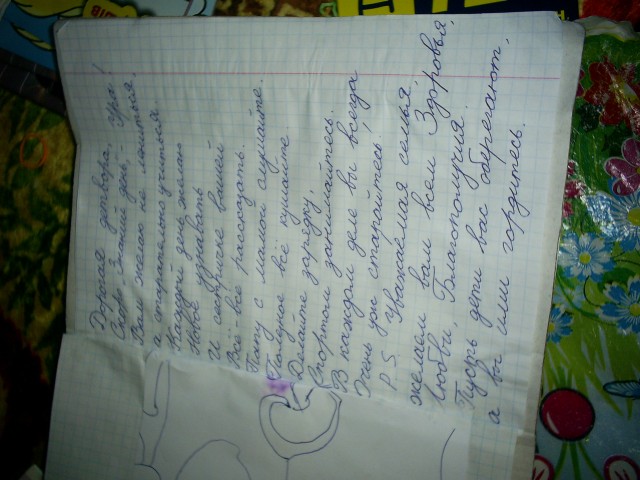 Дорогая детвора, Ура!
Скоро, знаний день,-
Вам желаю не лениться,
а старательно учиться
Каждый день желаю
Новое узнавать
И сестричке вашей
Всё-всё рассказать.
Папу с мамой слушайте.
Полезное всё кушайте
Делайте зарядку,
Спортом занимайтесь.
В каждом деле вы всегда
Очень уж старайтесь!
P.S. Уважаемая семья,
желаем вам всем Здоровья,
Любви, Благополучия.
Пусть дети вас оберегают,
а вы ими гордитесь.